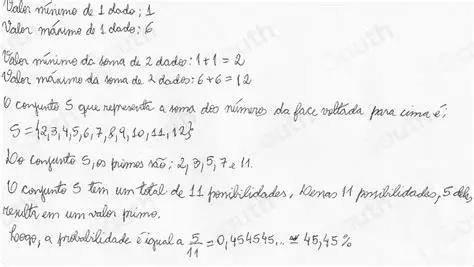 Valor mínimo de 1 dado: 1
Valor máximo de 1 dado: 6
Valor mínimo da soma de 2 dados: 1+1 = 2
Valor máximo da soma de 2 dados: 6+6 = 12
O conjunto S que representa a soma dos números da face voltada para cima é:
S = {2,3,4,5,6,7,8,9,10,11,12}
Do conjunto S, os primos são: 2, 3, 5, 7 e 11.
O conjunto S tem um total de 11 possibilidades. Dessas 11 possibilidades, 5 delas
resulta em um valor primo.
Logo, a probabilidade é igual a 5/11 = 0,454545... ≅ 45,45%